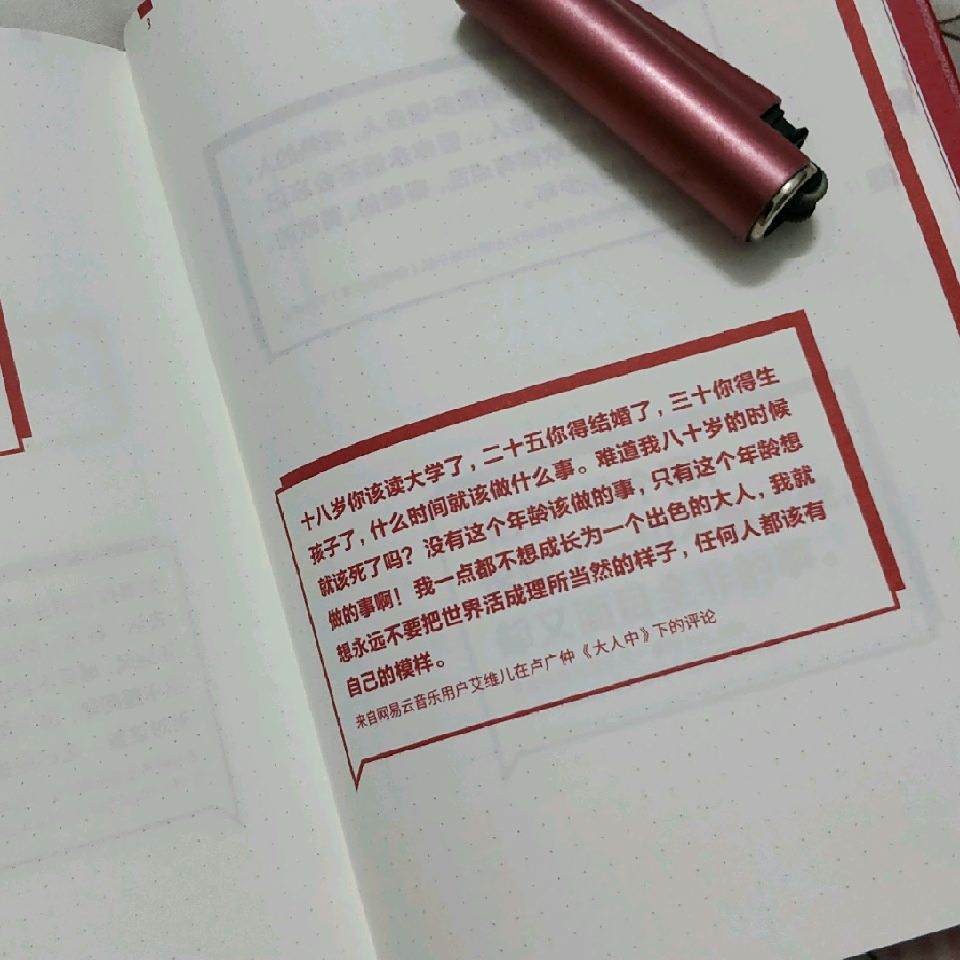 3
十八岁你该读大学了，二十五你得结婚了，三十你得生
孩子了，什么时间就该做什么事。难道我八十岁的时候
就该死了吗？没有这个年龄该做的事，只有这个年龄想
做的事啊！我一点都不想成长为一个出色的大人，我就
想永远不要把世界活成理所当然的样子，任何人都该有
自己的模样。
来自网易云音乐用户艾维儿在卢广仲《大人中》下的评论